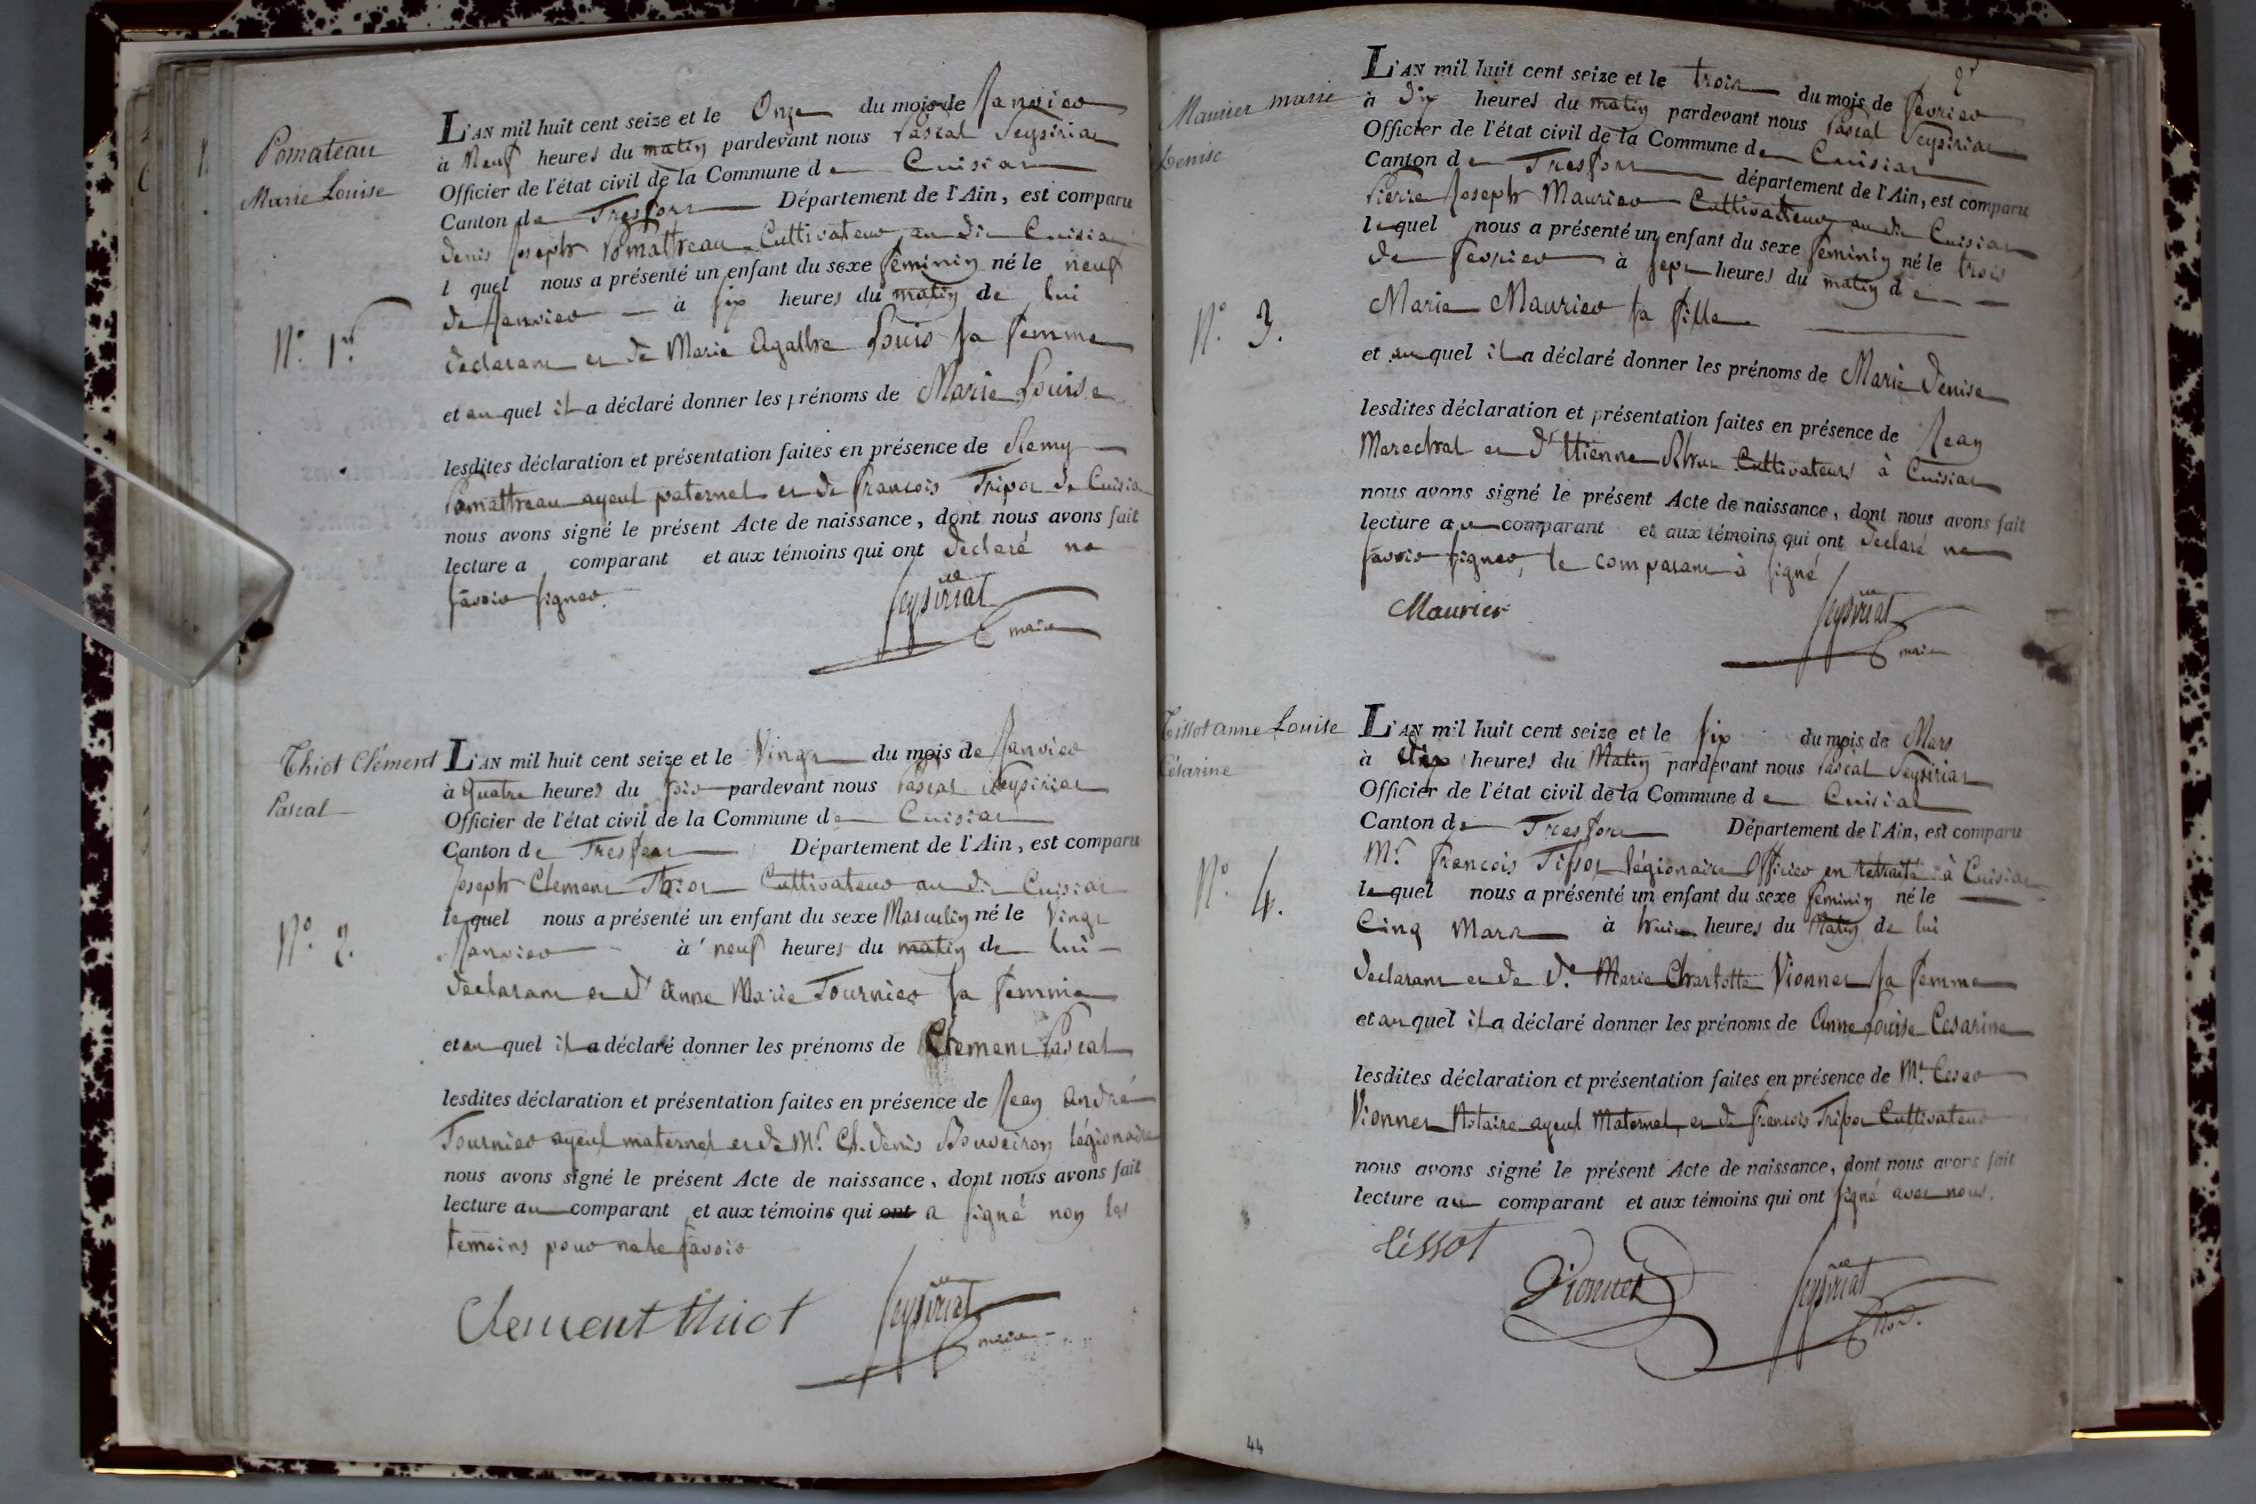 Pomateau
Marie Louise
N.° 1.er
L'AN mil huit cent seize et le Onze du mois de Janvier
à Neuf heures du matin pardevant nous Pascal Seysiriat
Officier de l'état civil de la Commune de Cuisiat
Canton de Treffort Département de l'Ain, est comparu
Denis Joseph Pomattreau Cultivateur au dit Cuisiat
l quel nous a présenté un enfant du sexe féminin né le neuf
de Janvier à six heures du matin de lui
declarant et de Marie Agathe Louis sa femme
et au quel il a déclaré donner les prénoms de Marie Louise
lesdites déclaration et présentation faites en présence de Remy
Pomattreau ayeul paternel et de françois Tripoz de Cuisia
nous avons signé le présent Acte de naissance, dont nous avons fait
lecture a comparant et aux témoins qui ont declaré ne
savoir signer.
Seysiriat
maire
Thiot Clément
Pascal
N.° 2.
L'AN mil huit cent seize et le Vingt du mois de Janvier
à Quatre heures du soir pardevant nous Pascal Seysiriat
Officier de l'état civil de la Commune de Cuisiat
Canton de Treffort Département de l'Ain, est comparu
Joseph Clement Thiot Cultivateur au dit Cuisiat
le quel nous a présenté un enfant du sexe Masculin né le Vingt
Janvier à neuf heures du matin de lui
declarant et d'anne Marie Tournier sa femme
et au quel il a déclaré donner les prénoms de Clement Pascal
lesdites déclaration et présentation faites en présence de Jean André
Tournier ayeul maternel et de M.r Ch. Denis Bouveiron légionaire
nous avons signé le présent Acte de naissance, dont nous avons fait
lecture au comparant et aux témoins qui ont a signé non les
temoins pour ne le savoir
Clement thiot
Seysiriat
maire
Maurier marie
Denise
N.° 3.
L'AN mil huit cent seize et le trois du mois de fevrier
à dix heures du matin pardevant nous Pascal Seysiriat
Officier de l'état civil de la Commune de Cuisiat
Canton de Treffort département de l'Ain, est comparu
Pierre Joseph Maurier Cultivateur au dit Cuisiat
le quel nous a présenté un enfant du sexe féminin né le trois
de fevrier à sept heures du matin de
Marie Maurier sa fille
et au quel il a déclaré donner les prénoms de Marie Denise
lesdites déclaration et présentation faites en présence de Jean
Marechal et d'Etienne Cultivateurs à Cuisiat
nous avons signé le présent Acte de naissance, dont nous avons fait
lecture au comparant et aux témoins qui ont declaré ne
savoir signer, le comparant à signé
Maurier
Seysiriat
maire
Tissot anne Louise
Césarine
N.° 4.
L'AN mil huit cent seize et le six du mois de Mars
à dix heures du Matin pardevant nous Pascal Seysiriat
Officier de l'état civil de la Commune de Cuisiat
Canton de Treffort Département de l'Ain, est comparu
M.r françois Tissot légionaire Officier en retraite à Cuisiat
le quel nous a présenté un enfant du sexe féminin né le
Cinq Mars à huit heures du Matin de lui
declarant et de D.e Marie Charlotte Vionnet sa femme
et au quel il a déclaré donner les prénoms de Anne Louise Cesarine
lesdites déclaration et présentation faites en présence de M.r Cesar
Vionnet Notaire ayeul Maternel et de françois Tripoz Cultivateur
nous avons signé le présent Acte de naissance, dont nous avons fait
lecture au comparant et aux témoins qui ont signé avec nous.
tissot
Vionnet
Seysiriat
44